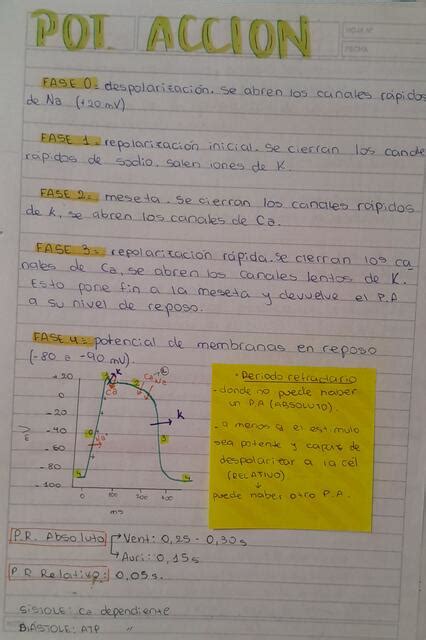 POT. ACCION
HOJA Nº
FECHA
FASE 0: despolarización. Se abren los canales rápidos
de Na (+20mV)
FASE 1: repolarización inicial. Se cierran los canale
rápidos de sodio. salen iones de K.
FASE 2: meseta. Se cierran los canales rápidos
de K, se abren los canales de Ca.
FASE 3: repolarización rápida. Se cierran los ca
nales de Ca, se abren los canales lentos de K.
Esto pone fin a la meseta y devuelve el P.A
a su nivel de reposo.
FASE 4: potencial de membranas en reposo
(-80 a -90 mV).
+20
0
-20
-40
-60
-80
-100
1
2
K
Ca
K
0
Na
3
4
4
0
100
ms
• Periodo refractario
- donde no puede haber
un P.A (ABSOLUTO).
- a menos q el estimulo
sea potente y capaz de
despolarizar a la cel
(RELATIVO)
↓
puede haber otro P.A.
P.R. Absoluto → Vent: 0,25 - 0,30s
→ Auri: 0,15s
P R Relativo: 0,05s.
SISTOLE: Ca dependiente
DIASTOLE: ATP "